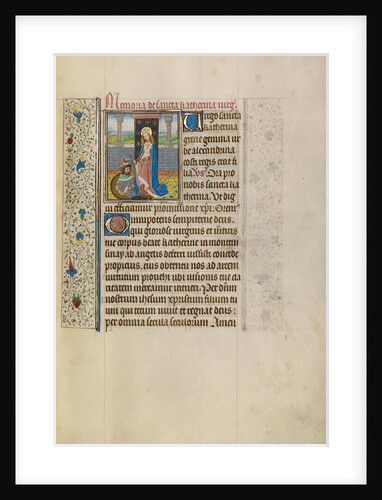 Memoria de sancta katherina virg̃.
Virgo sancta
katherina
grecie gemma ur
be alexandrina
costi regis erat fi
lia. Vs̃. Ora pro
nobis sancta ka
therina. Vt dig
ni efficiamur promissione xpi. Orem⁹
Omnipotens sempiterne deus,
qui gloriose virginis et
tue corpus beate katherine in montem
synay ab angelis deferri iussisti concede
propicius, eius obtentu nos ad arcem
virtutum provehi ubi visionis tue cla
ritatem mereamur intueri. Per dñm
nostrum ihesum xpristum filium tu
um qui tecum vivit et regnat deus:
per omnia secula seculorum Amen